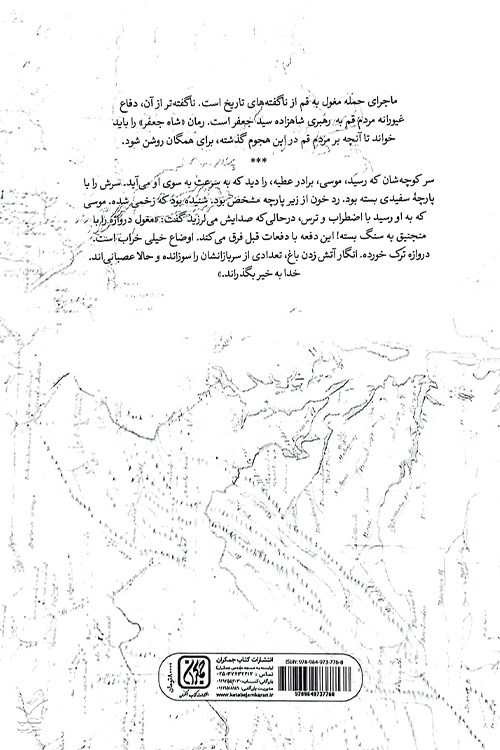 ماجرای حمله مغول به قم از ناگفته‌های تاریخ است. ناگفته‌تر از آن، دفاع
غیورانه مردم قم به رهبری شاهزاده سید جعفر است. رمان «شاه جعفر» را باید
خواند تا آنچه بر مردم قم در این هجوم گذشته، برای همگان روشن شود.
***
سر کوچه‌شان که رسید، موسی، برادر عطیه، را دید که به سرعت به سوی او می‌آید. سرش را با
پارچهٔ سفیدی بسته بود. رد خون از زیر پارچه مشخص بود. شنیده بود که زخمی شده. موسی
که به او رسید با اضطراب و ترس، درحالی‌که صدایش می‌لرزید گفت: «مغول دروازه را با
منجنیق به سنگ بسته! این دفعه با دفعات قبل فرق می‌کند. اوضاع خیلی خراب است.
دروازه ترک خورده. انگار آتش زدن باغ، تعدادی از سربازانشان را سوزانده و حالا عصبانی‌اند.
خدا به خیر بگذراند.»
انتشارات کتاب جمکران
ISBN: 978-964-973-776-8
www.ketabejamkaran.ir
9789649737768